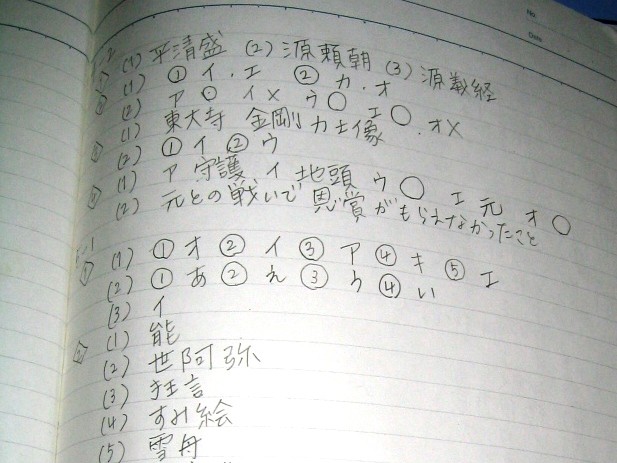 No.
Date
5-2
1 (1) 平清盛 (2) 源頼朝 (3) 源義経
2 (1) ① イ.エ ② カ.オ
(2) ア ○ イ× ウ○ エ○.オ×
3 (1) 東大寺 金剛力士像
(2) ① イ ② ウ
4 (1) ア 守護 イ 地頭 ウ ○ エ 元 オ ○
(2) 元との戦いで恩賞がもらえなかったこと
6-1
1 (1) ① オ ② イ ③ ア ④ キ ⑤ エ
(2) ① あ ② え ③ う ④ い
(3) イ
2 (1) 能
(2) 世阿弥
(3) 狂言
(4) すみ絵
(5) 雪舟